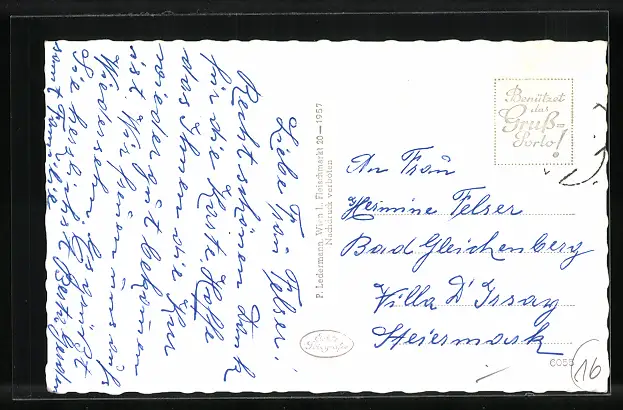 Liebe Frau Felser!
Recht schönen Dank
für die Karte Hoffe
das Ihnen die Kur
wieder gut bekommen
ist Wir freuen uns aufs
Wiedersehn Es grüßt
Sie herzlichst
samt Familie
P. Ledermann, Wien I., Fleischmarkt 20—1957
Nachdruck verboten
Benützet
das
Gruß-
Porto!
An Frau
Hermine Felser
Bad Gleichenberg
Villa D'Orsay
Steiermark
6055
16